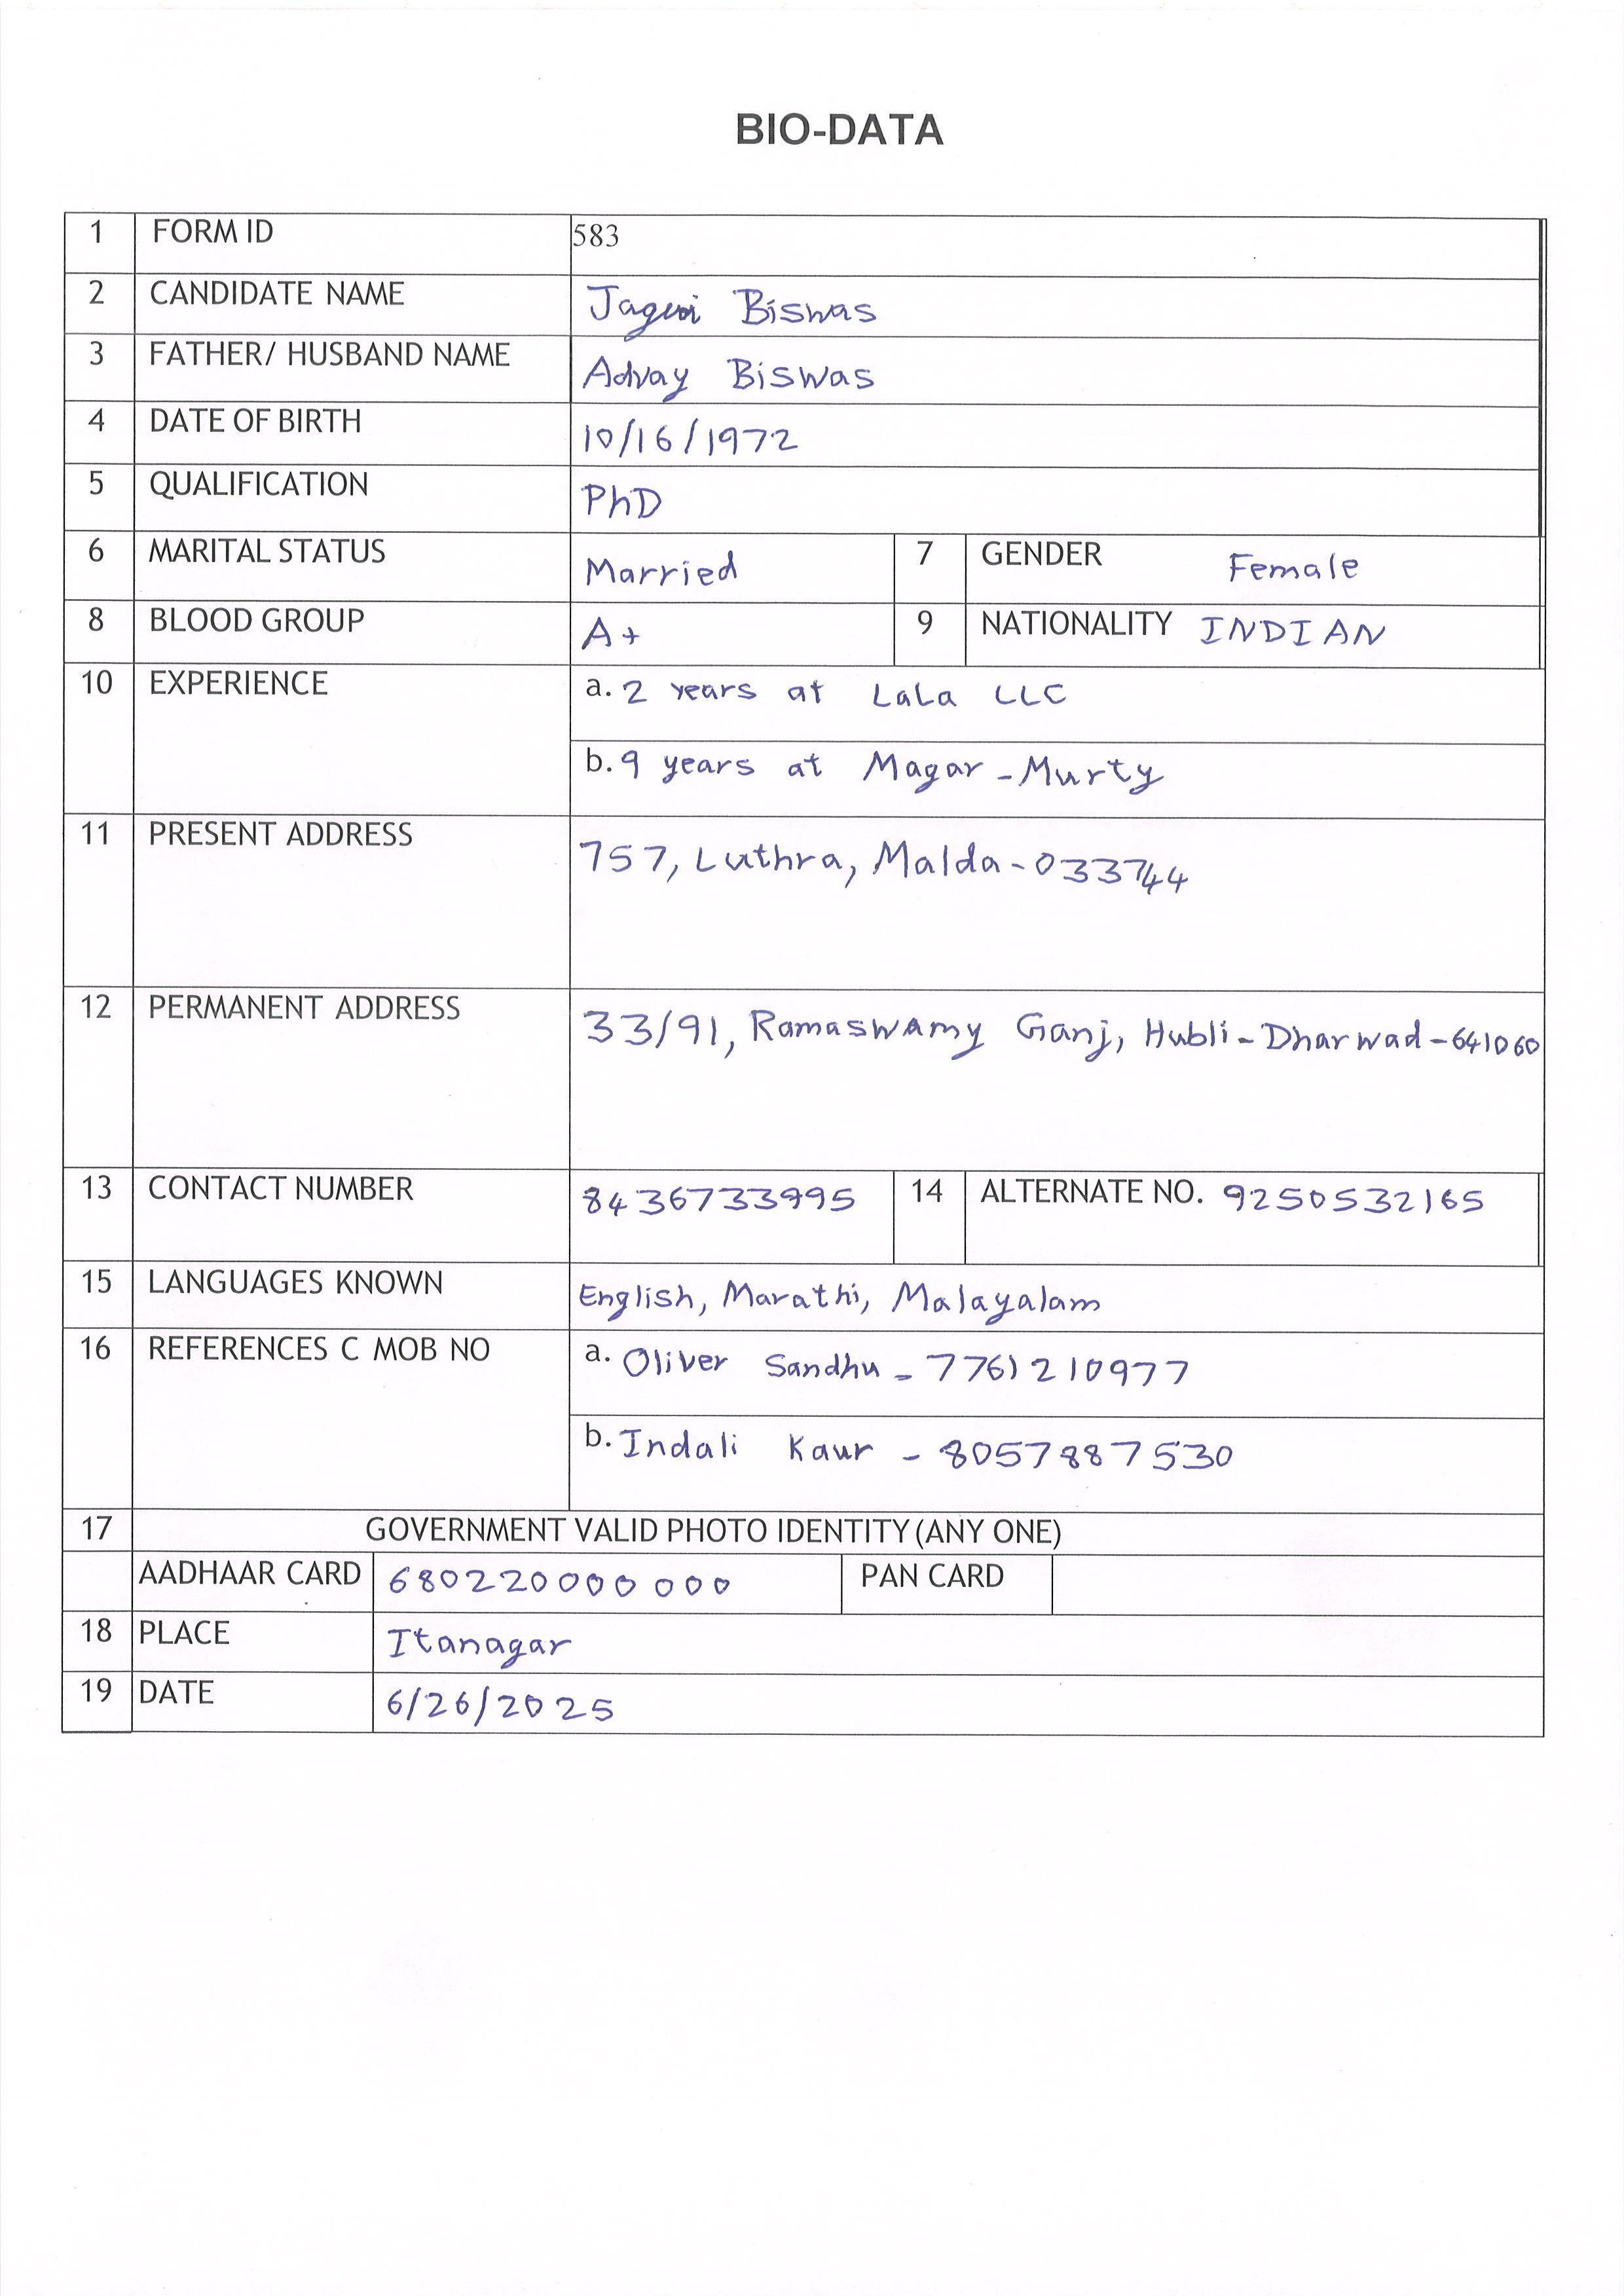 BIO-DATA
1 FORM ID 583
2 CANDIDATE NAME Biswas
3 FATHER/ HUSBAND NAME Advay Biswas
4 DATE OF BIRTH 10/16/1972
5 QUALIFICATION PhD
6 MARITAL STATUS Married 7 GENDER Female
8 BLOOD GROUP A+ 9 NATIONALITY INDIAN
10 EXPERIENCE a. 2 years at LaLa LLC
b. 9 years at Magar-Murty
11 PRESENT ADDRESS 757, Luthra, Malda-033744
12 PERMANENT ADDRESS 33/91, Ramaswamy Ganj, Hubli-Dharwad-641060
13 CONTACT NUMBER 8436733995 14 ALTERNATE NO. 9250532165
15 LANGUAGES KNOWN English, Marathi, Malayalam
16 REFERENCES C MOB NO a. Oliver Sandhu - 7761210977
b. Indali Kaur - 8057887530
17 GOVERNMENT VALID PHOTO IDENTITY (ANY ONE)
AADHAAR CARD 680220000000 PAN CARD
18 PLACE Itanagar
19 DATE 6/26/2025